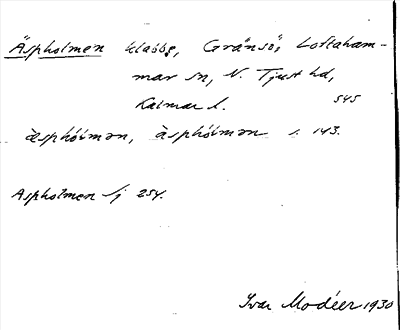 Äspholmen klabbe, Gränsö, Loftaham-
mar sn, N. Tjust hd,
Kalmar l. 545
æsphòlmən, àsphòlmən s. 143.
Aspholmen Sj 254.
Ivar Modéer 1930